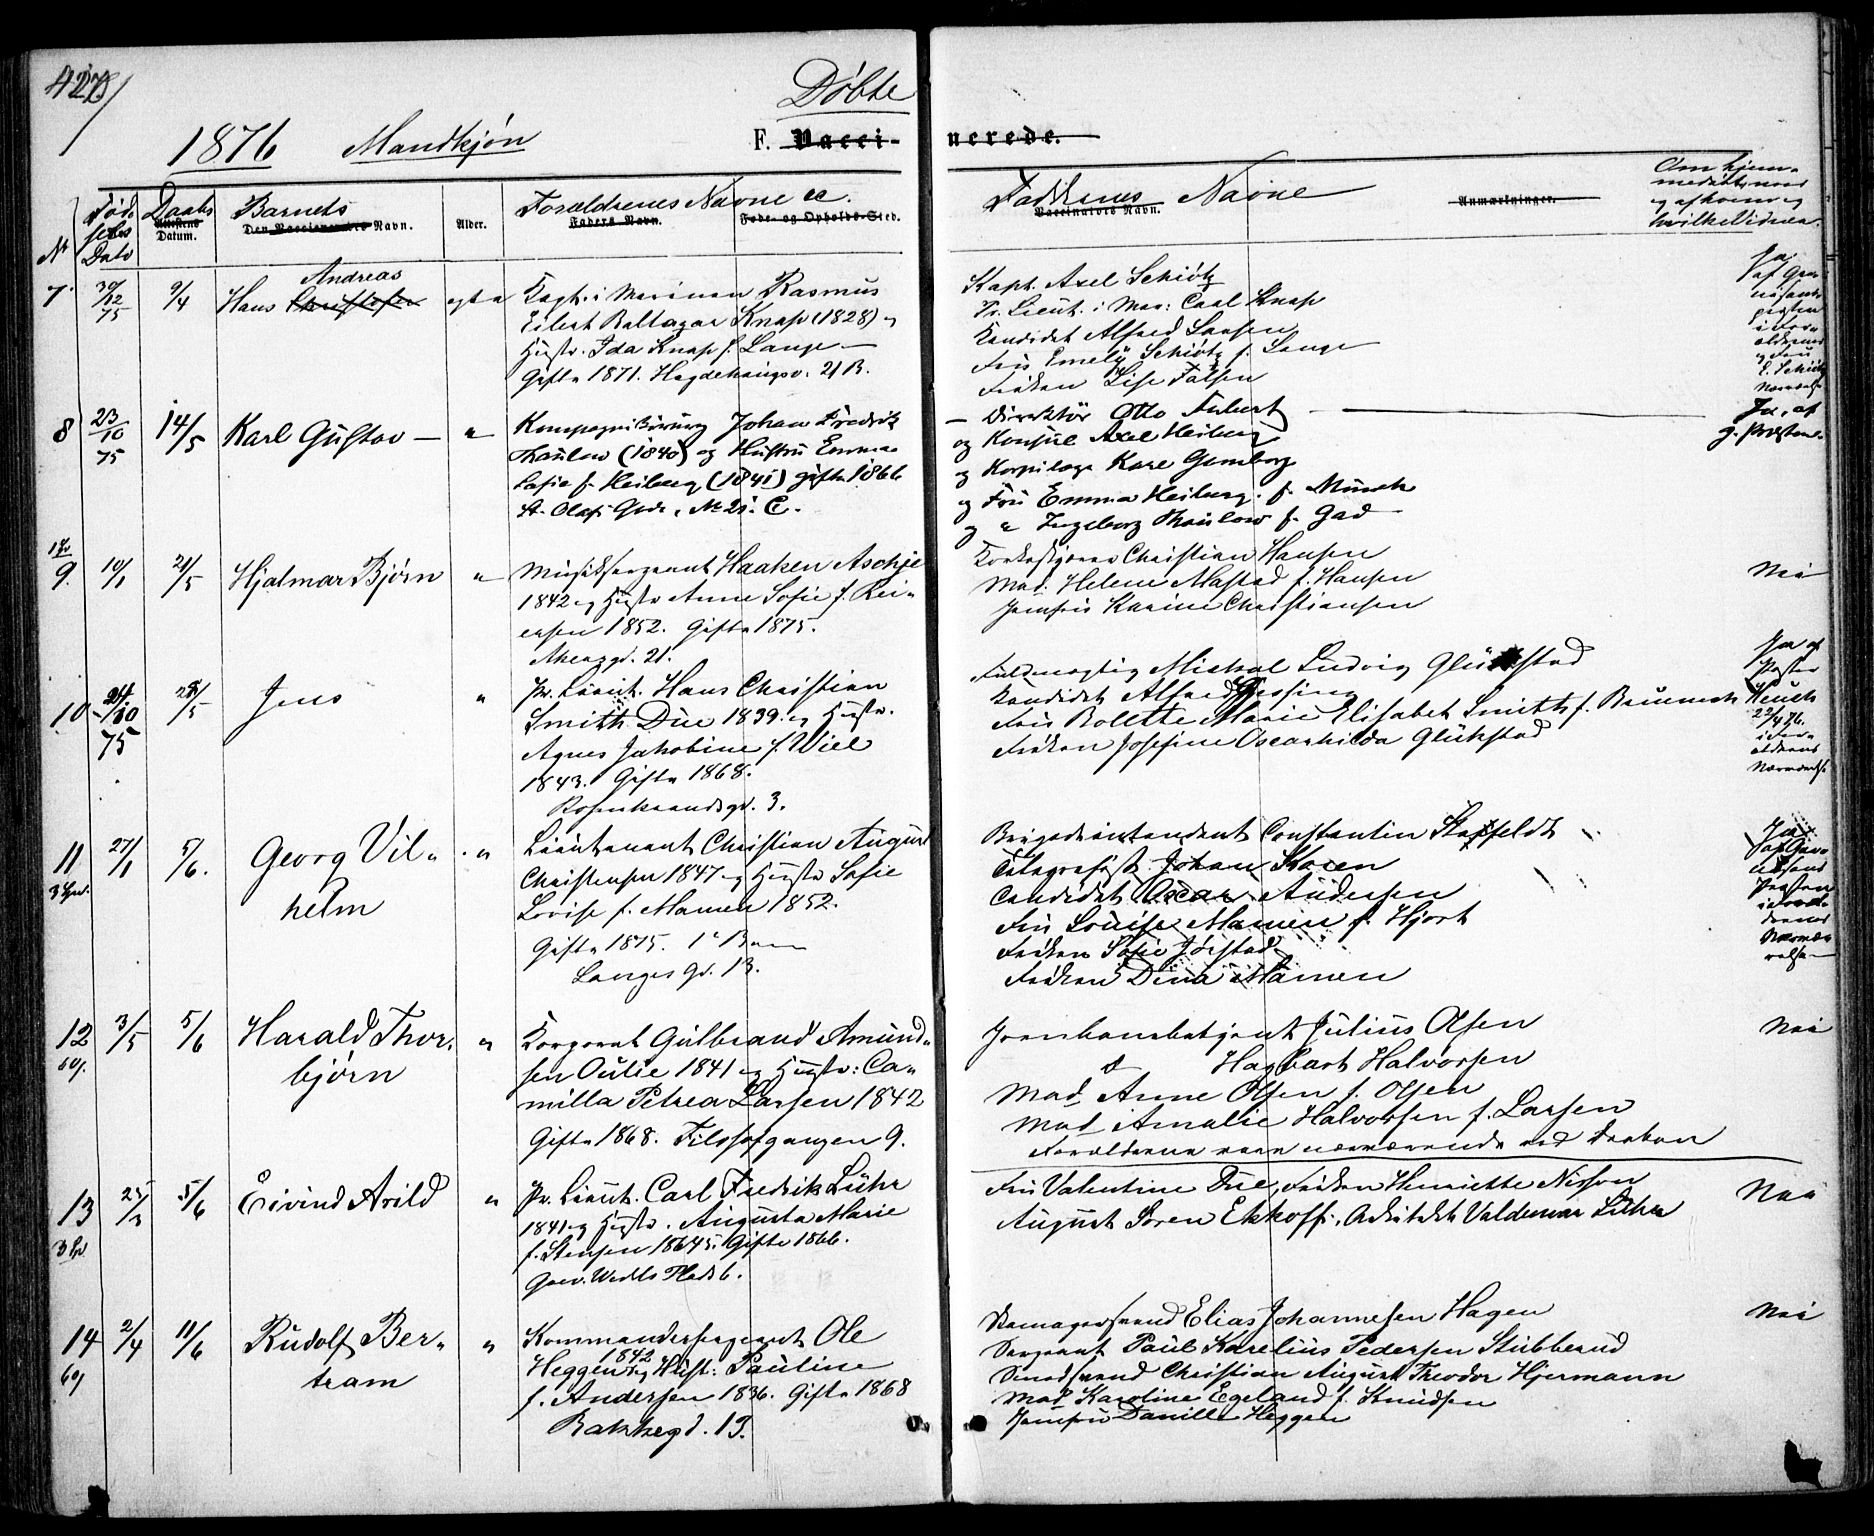 Døbte
1876 Mandkjøn
F. Vacci-
nerede.
Nr
Fødselsdato
Daabs
Datum.
Barnets
Den Vaccineredes Navn.
Alder.
Forældrenes Navne
Faders Navn.
Føde- og Opholds-Sted.
Faddernes Navne
Vaccinators Navn.
Anmærkninger.
Om hjem-
medøbt, naar
og af hvem og
hvilke Vidner.
7 30/12 75 9/4 Hans Christofer Andreas egte
Kapt. i Marinen Rasmus
Eilert Baltazar Knap (1828) og
Hustr. Ida Knap f. Lange
Gift 1871. Hegdehaugsv. 21 B.
Kapt. Axel Schiøtz
Pr. Lieut. i Mar: Carl Knap
Kandidat Alfred Larsen
Fru Emely Schiøtz f. Lange
Frøken Lise Falsen
8 23/10 75 14/5 Karl Gustav — "
Kompagnikirurg Johan Fredrik
Thaulow (1840) og Hustru Emma
Sofie f. Heiberg (1841) gifte 1866
St. Olafs Gade, No 21. C.
Direktör Otto
og Konsul Axel Heiberg
og Korpslæge Karl Gomborg
og Fru Emma Heiberg f. Munch
og " Ingeborg Thaulow f. Gad
Ja, af
g. Præsten.
9. 10/1 21/5 Hjalmar Bjørn "
Musiksergeant Haaken Aschje
1842 og Hustr Anne Sofie f. Rei-
ersen 1852. Gift 1875.
Akersgd. 21.
Christian Hansen
Mad. Helene Mastad f. Hansen
Jomfru Karine Christiansen
Nei
10. 24/10 75 28/5 Jens "
Pr. Lieut. Hans Christian
Smith Due 1839 og Hustr.
Agnes Jakobine f. Wiel
1843. Gift 1868.
Rosenkrandsgd. 3.
Fuldmægtig Michal Ludvig Glückstad
Kandidat Alfred Gjessing
Fru Bolette Marie Elisabet Smith f.
Frøken Josefine Oscarhilda Glückstad
Ja af
Pastor
Heuch
22/4 76.
i For-
ældrenes
Nærværelse
11 27/1 5/6. Georg Vil- "
helm
Lieutenant Christian August
Christensen 1847 og Hustr Sofie
Lovise f. Mamen 1852.
Gift 1875. 1ste Barn
Langes Gd. 13.
Brigadeintendent Constantin Staffeldt
Telegrafist Johan Koren
Candidat Oscar Andersen
Fru Louise Mamen f. Hjort
Frøken Sofie Jørstad
Frøken Dina Mamen
12 3/5 5/6 Harald Thor- "
bjørn
Korporal Gulbrand Amund-
sen Oulie 1841 og Hustr: Ca-
milla Petrea Larsen 1842
Gift 1868. Filosofgangen 9.
Jernbanebetjent Julius Olsen
do Hagbart Halvorsen
Mad Anne Olsen f. Olsen
Mad Amalie Halvorsen f. Larsen
Forældrene vare nærværende ved Daaben
Nei
13 5/6 Eivind Arild "
Pr. Lieut. Carl Fredrik Lühr
1841 og Hustr. Augusta Marie
f. Stensen 1845. Gifte 1866.
Grev. Wedels Plads 6.
Fru Valentine Due, Frøken Henriette Nissen
August Soren Ekhoff, Arkitekt Valdemar Lühr
Nei
14 2/4 11/6 Rudolf Ber- "
tram
Kommandersergeant Ole
Heggen 1842 og Hust: Pauline
f. Andersen 1836. Gift 1868
Bakkegd. 13.
Elias Johannesen Hagen
Sergeant Paul Karelius Pedersen Stubberud
Christian August Theodor Hjermann
Mad Karoline Egeland f. Knudsen
Jomfru Danille Heggen
Nei